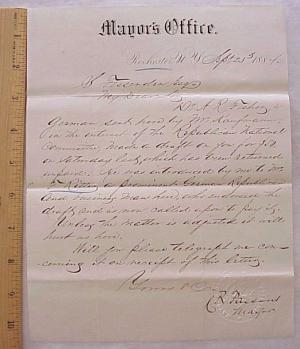 Mayor's Office.
Rochester N.Y. Sept 23 188
Fessenden Esq
My Dear Sir
Dr A. R. Fisher a
German sent here by Mr Kaufmann
in the interest of the Republican National
Committee, made a draft on you for
on Saturday last, which has been returned
unpaid. He was introduced by me to Mr
a prominent German Republican
and business man here, who endorsed the
draft, and is now called upon to pay it.
Unless the matter is adjusted it will
hurt us here.
Will you please telegraph me con-
cerning it on receipt of this letter.
Yours
C. R. Parsons
Mayor
1 2 3 4 5 6 7 8 9 10